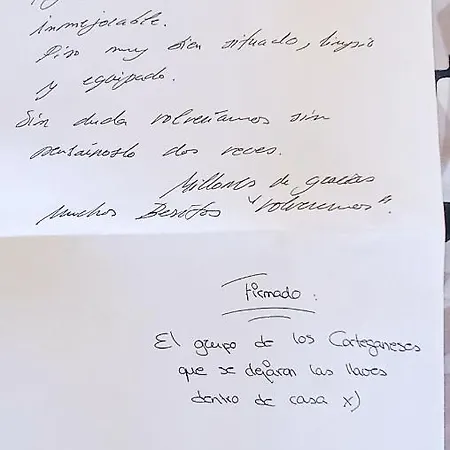 inmejorable.
Piso muy bien situado, limpio
y equipado.
Sin duda volveríamos sin
pensárnoslo dos veces.
Millones de gracias
muchos Besitos "Volveremos".
Firmado:
El grupo de los Corteganeses
que se dejaron las llaves
dentro de casa x)